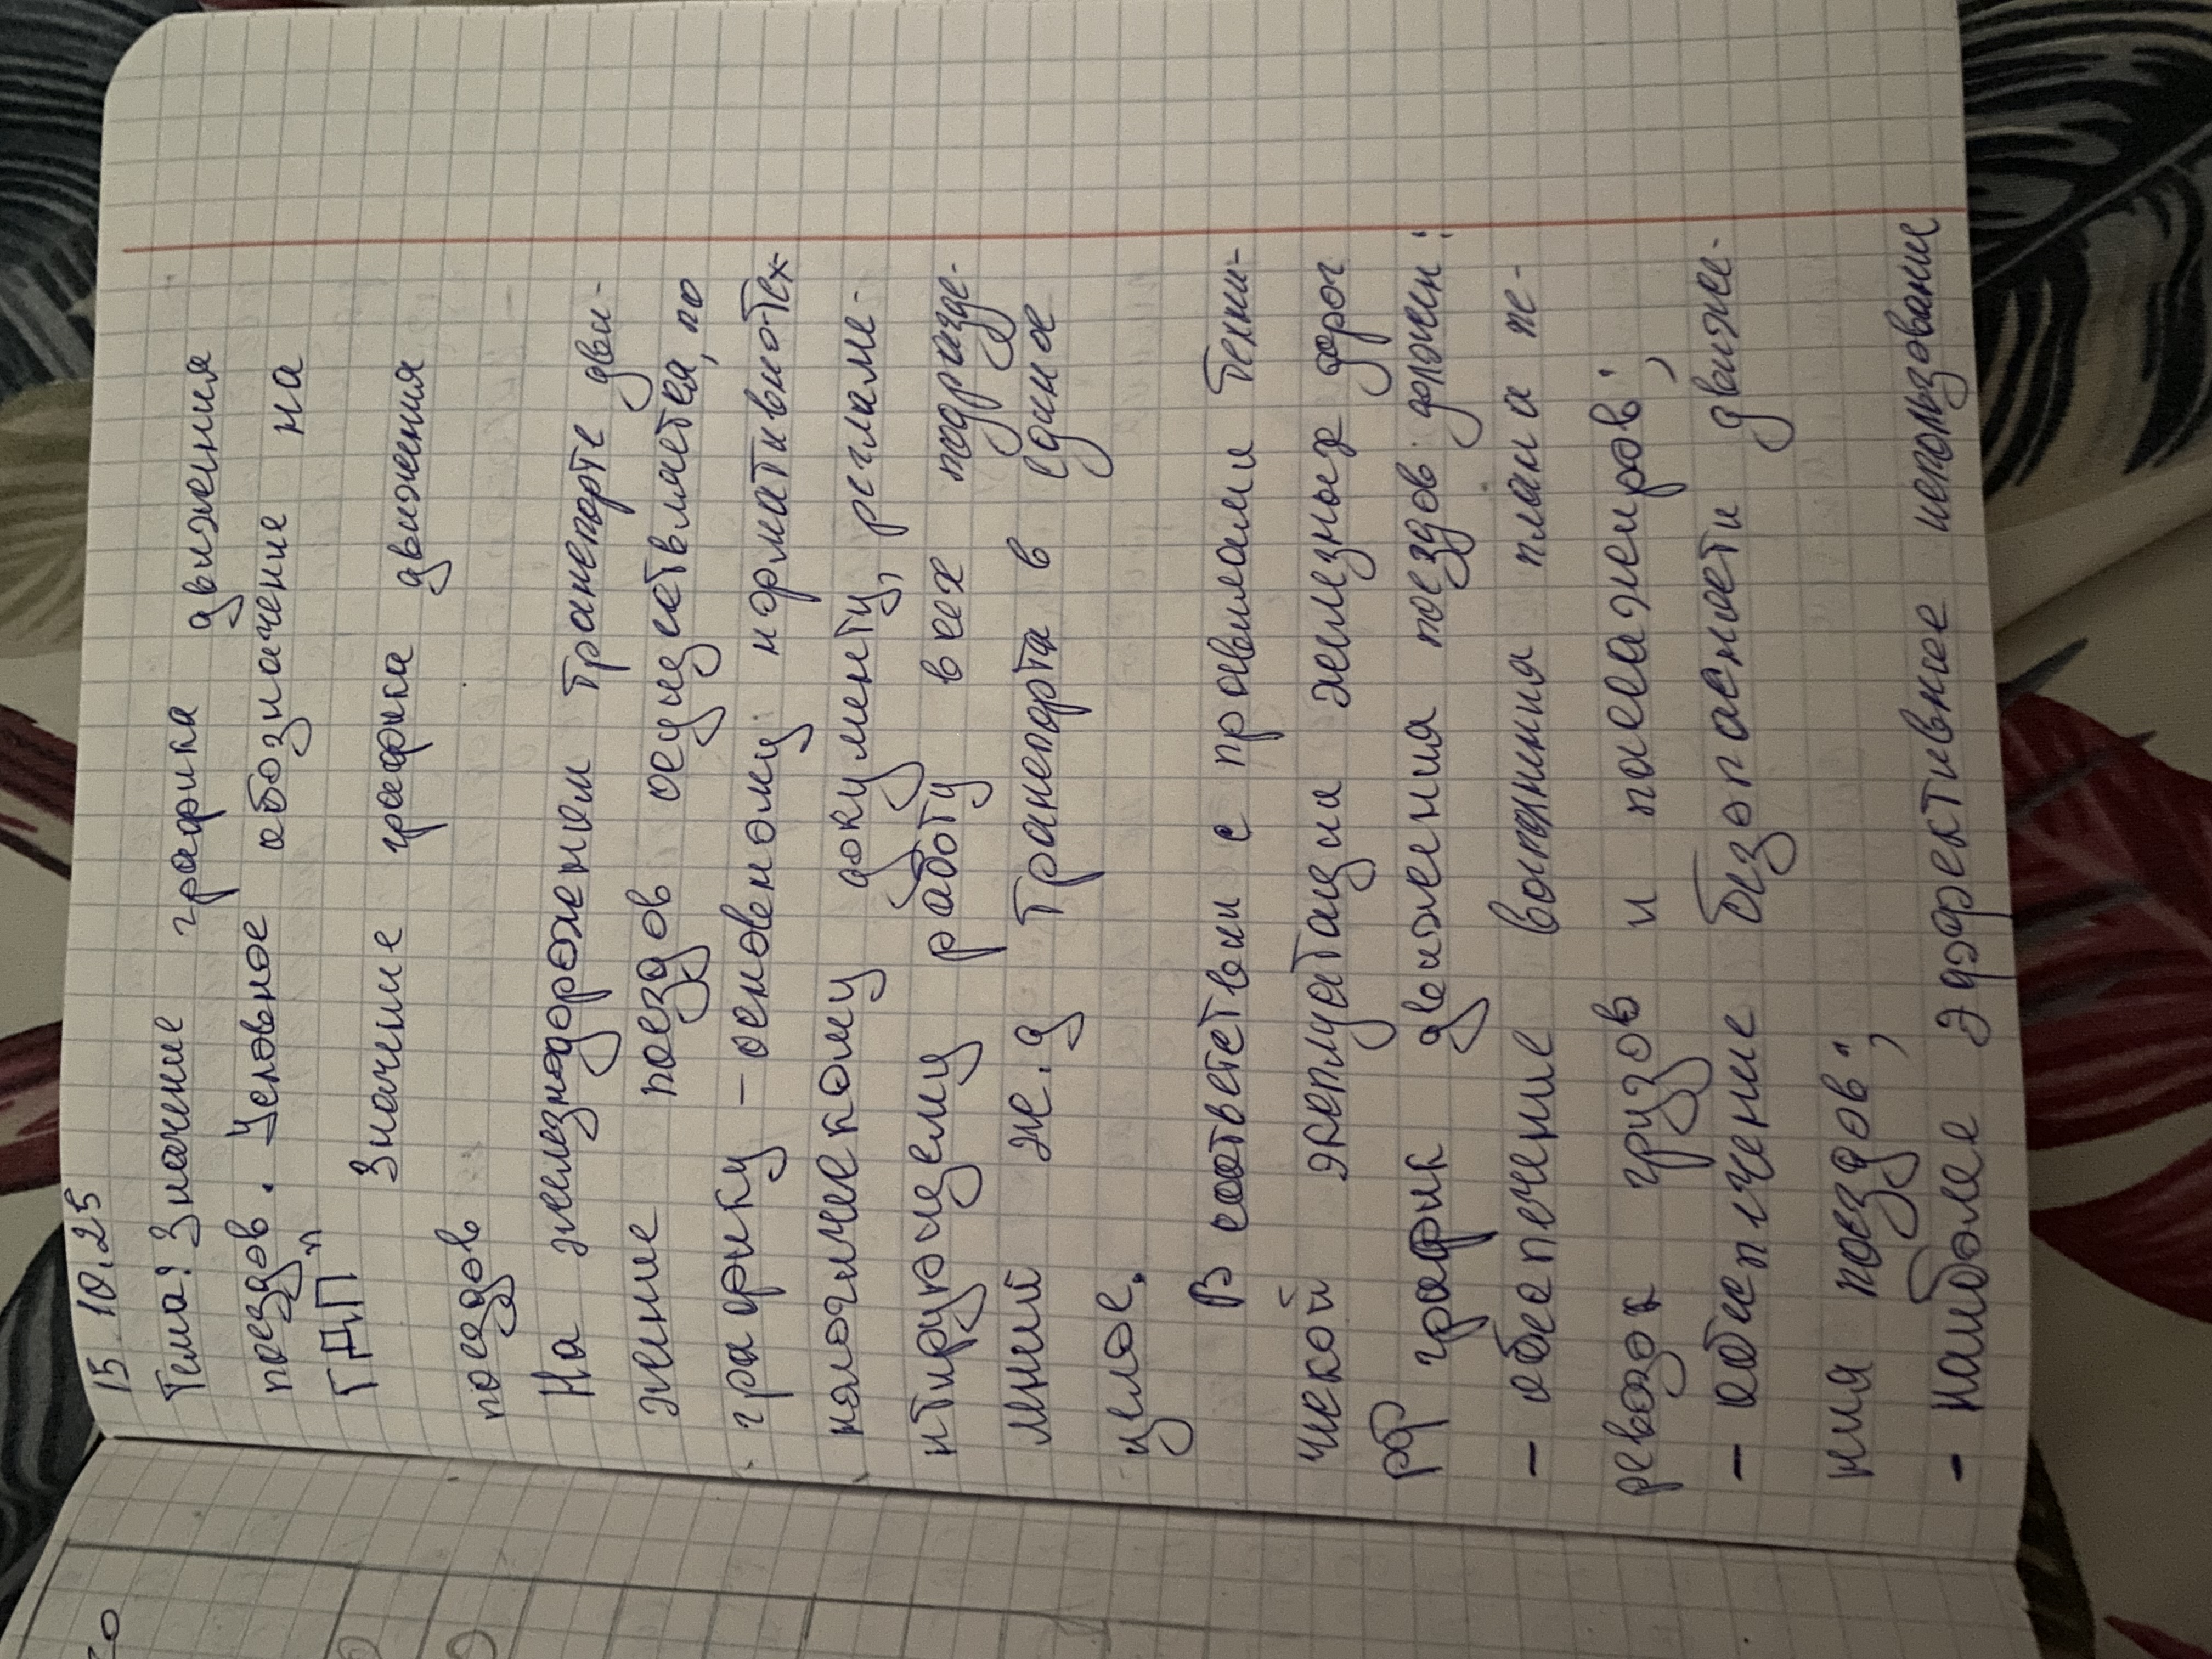 15.10.25
Тема: Значение графика движения
поездов. Условное обозначение на
ГДП"
Значение графика движения
поездов
На железнодорожном транспорте дви-
жение поездов осуществляется, по
графику – основному нормативно-тех-
нологическому документу, регламе-
нтирующему работу всех подразде-
лений ж.д транспорта в единое
целое.
В соответствии с правилами техни-
ческой эксплуатации железных дорог
РФ график движения поездов должен:
- обеспечение выполнения плана пе-
ревозок грузов и пассажиров;
- обеспечение безопасности движе-
ния поездов;
- наиболее эффективнее использование